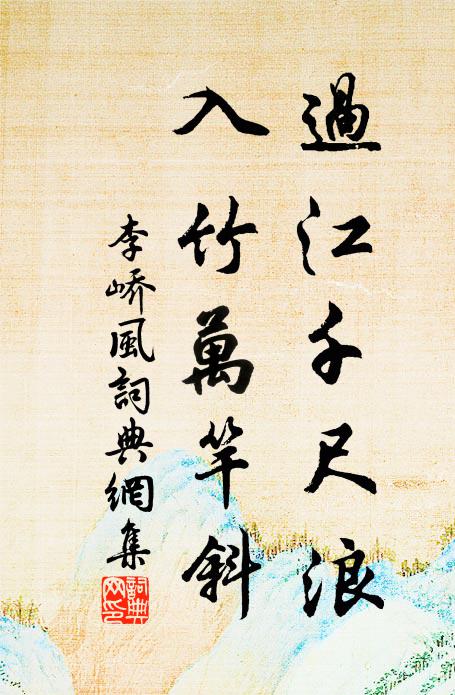 過江千尺浪
入竹萬竿斜
李嶠風詞典網集
詞典